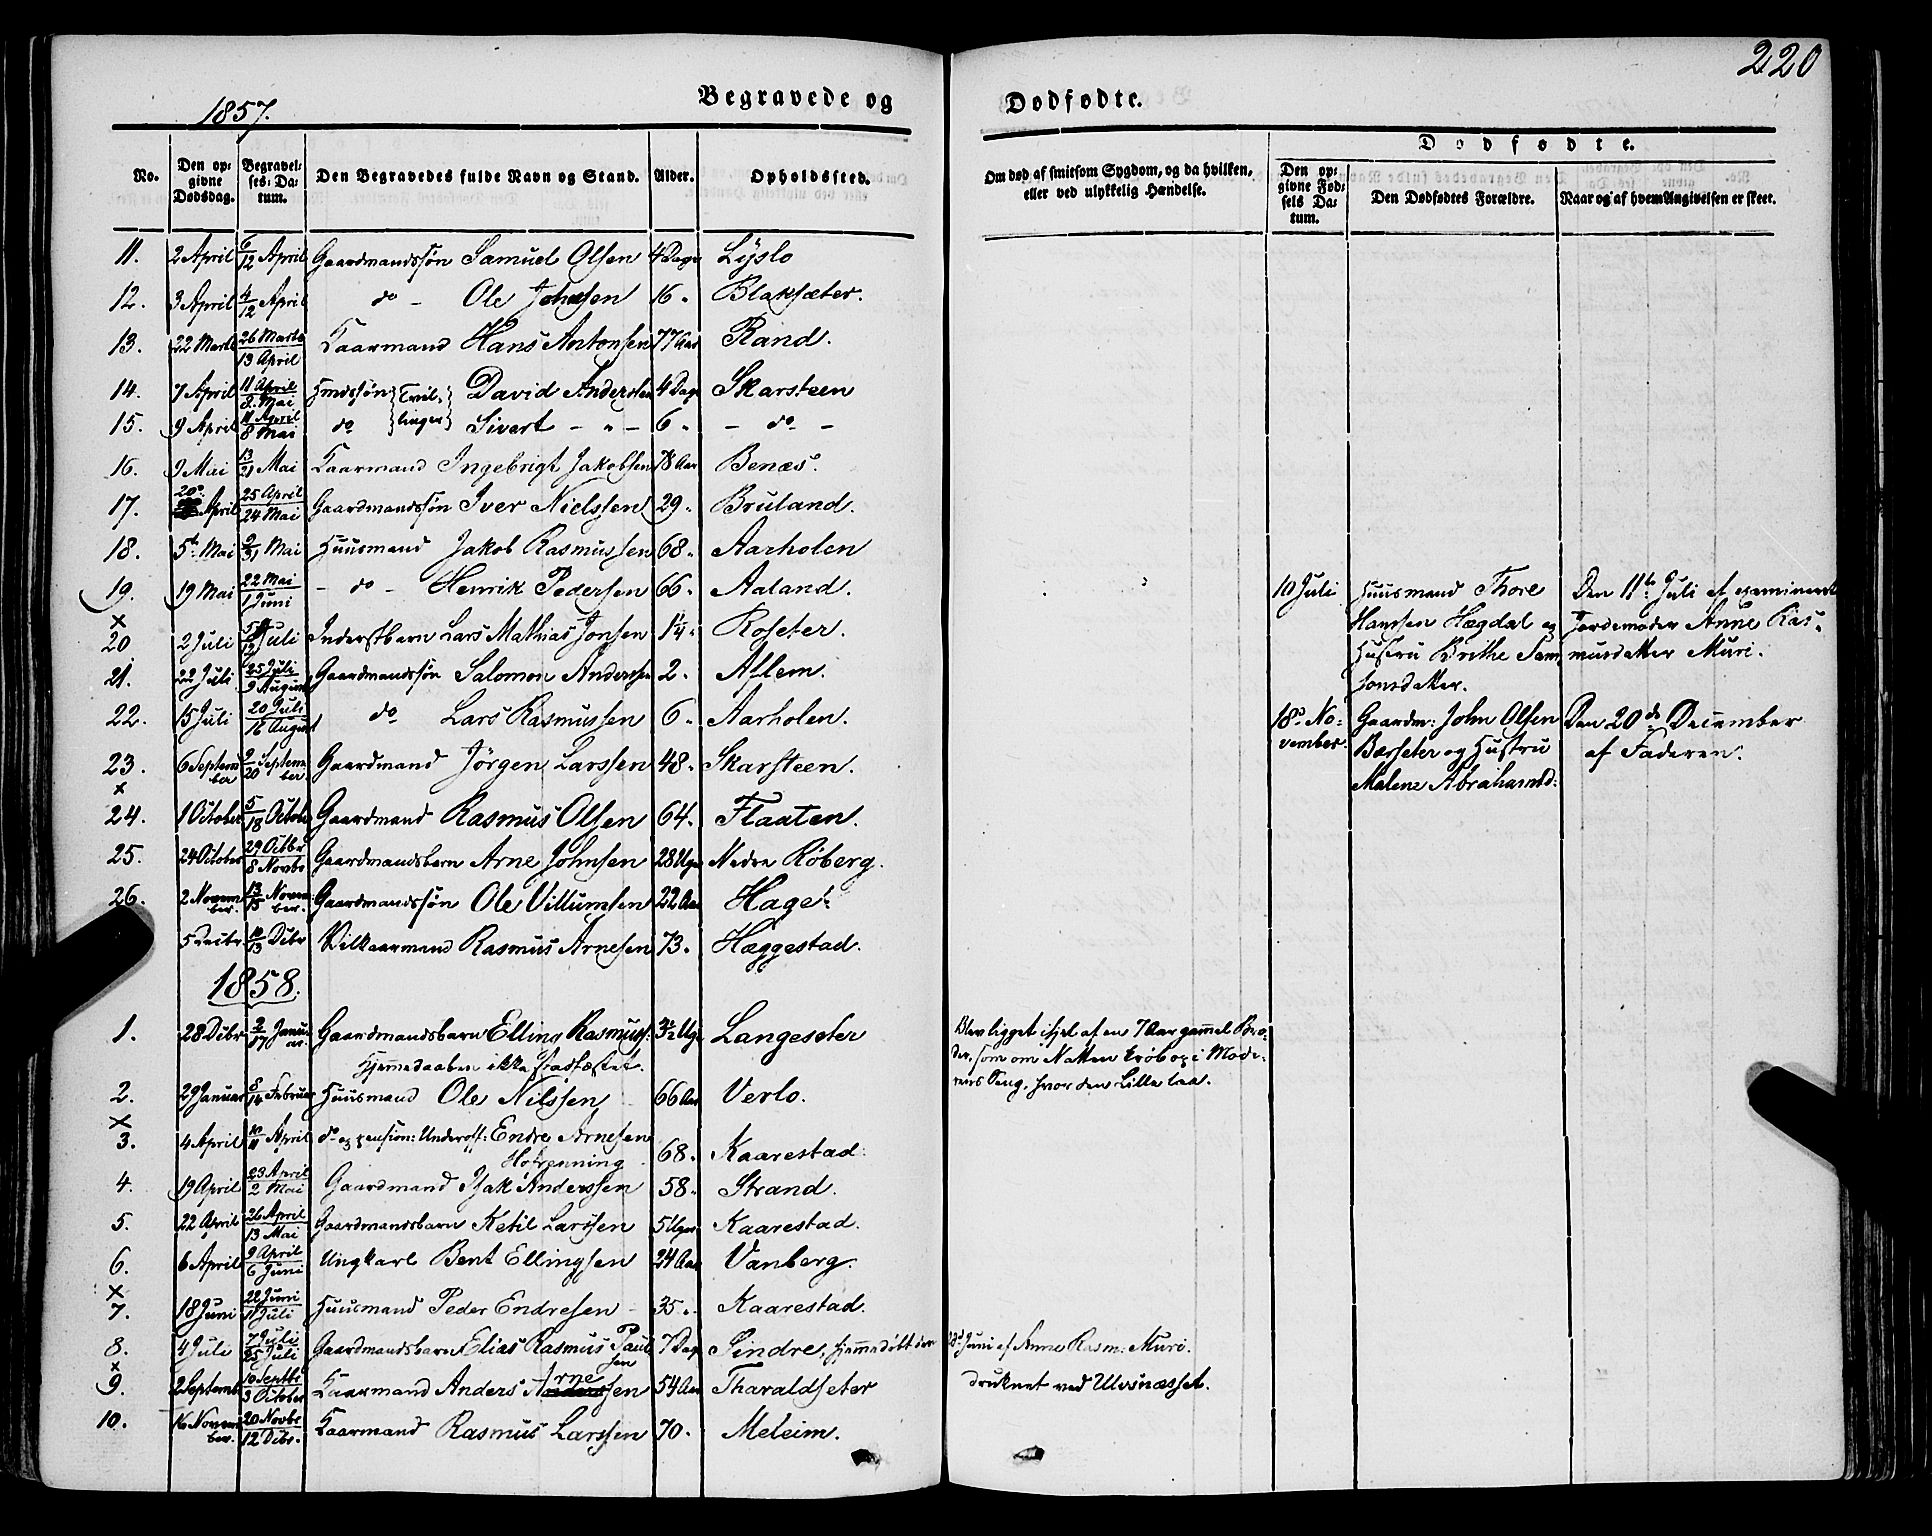 220
1857.
Begravede og Dødfødte.
Dødfødte.
No.
Den opgivne Dødsdag.
Begravelses-Datum.
Den Begravedes fulde Navn og Stand.
Alder.
Opholdssted.
Om død af smitsom Sygdom, og da hvilken, eller ved ulykkelig Hændelse.
Den opgivne Fødsels Datum.
Den Dødfødtes Forældre.
Naar og af hvem Angivelsen er skeet.
11. 2 April 6/12 April Gaardmandssøn Samuel Olsen 4 Dage Lyslo
12. 3 April 4/12 April do - Ole Johnsen 16 " Blaksæter.
13. 22 Marts 26 Marts/13 April Kaarmand Hans Antonsen 77 Aar Rand.
14. 7 April 11 April/8 Mai Hmdssøn Tvil- David Andersen 4 Dage Skarsteen
15. 9 April 11 April/8 Mai do linger Sivert - " - 6 " - do -
16. 9 Mai 13/21 Mai Kaarmand Ingebrigt Jakobsen 78 Aar Benæs.
17. 20de April 25 April/24 Mai Gaardmandssøn Iver Nielssen 29 " Bruland.
18. 5te Mai 9/31 Mai Huusmand Jakob Rasmussen 68 " Aarholen
19. 19 Mai 22 Mai/1 Juni - do - Henrik Pedersen 66 " Aaland.
x
20 2 Juli 5/12 Juli Inderstbarn Lars Mathias Jonsen 1 1/4 " Roseter.
21. 22 Juli 25 Juli/9 August Gaardmandssøn Salomon Anderssen 2 " Aflem.
22. 15 Juli 20 Juli/16 August do Lars Rasmussen 6 " Aarholen.
23. 6 September 9/20 September Gaardmand Jørgen Larssen 48 " Skarsteen.
x
24. 1 October 5/18 October Gaardmand Rasmus Olsen 64 " Flaaten.
25. 24 October 29 Octbr/8 Novbr Gaardmandsbarn Arne Johnsen 28 Uger Nedre Røberg.
26. 2 November 13/15 November. Gaardmandssøn Ole Villumsen 22 Aar Hage
5 Decbr 10/13 Dcbr Vilkaarmand Rasmus Arnesen 73 " Hæggestad.
10 Juli Huusmand Thore Den 11te Juli af examineret
Hansen Hægdal og Jordemoder Anne Ras-
Hustru Brithe Sam musdatter Muri.
sonsdatter.
18de No- Gaardm: John Olsen Den 20de December
vember. Bærseter og Hustru af Faderen.
Malene Abrahamsd:
1858.
1. 28 Dcbr 2/17 Januar Gaardmandsbarn Elling Rasmuss: 3 1/2 Uge Langeseter Blev ligget ihjel af en 7 Aar gammel Bro-
Hjemmedaaben ikke stadfæstet. der, som om Natten krøb op i Mode-
rens Seng, hvor den Lille laa.
2. 29 Januar 8/14 Februar Huusmand Ole Nilssen 66 Aar Verlo.
x
3. 4 April 10/11 April do og pension: Underoff: Endre Arnesen 68 " Kaarestad.
4. 19 April 23 April/2 Mai Gaardmand Isak Anderssen 58 " Strand.
5. 22 April 26 April/13 Mai Gaardmandsbarn Ketil Larssen 5 Uger Kaarestad.
6. 6 April 9 April/6 Juni Ungkarl Bent Ellingsen 24 Aar Vanberg.
x
7. 18 Juni 22 Juni/11 Juli Huusmand Peder Endresen - 35 " Kaarestad.
8. 4 Juli 7 Juli/25 Juli Gaardmandsbarn Elias Rasmus Paulsen 7 Dage Sindre, hjemmedøbt den 28d Juni af Anne Rasm: Muri.
x
9. 2 Septemb 10 Septbr/3 October Kaarmand Anders Arnesen 54 Aar Tharaldseter druknet ved Ulvsnæsset.
10. 16 November. 20 Novbr/12 Dcbr. Kaarmand Rasmus Larssen 70 " Meleim.